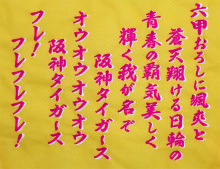 六甲おろしに颯爽と
蒼天翔ける日輪の
青春の覇気美しく
輝く我が名ぞ
阪神タイガース
オウオウオウオウ
阪神タイガース
フレ！
フレフレフレ！